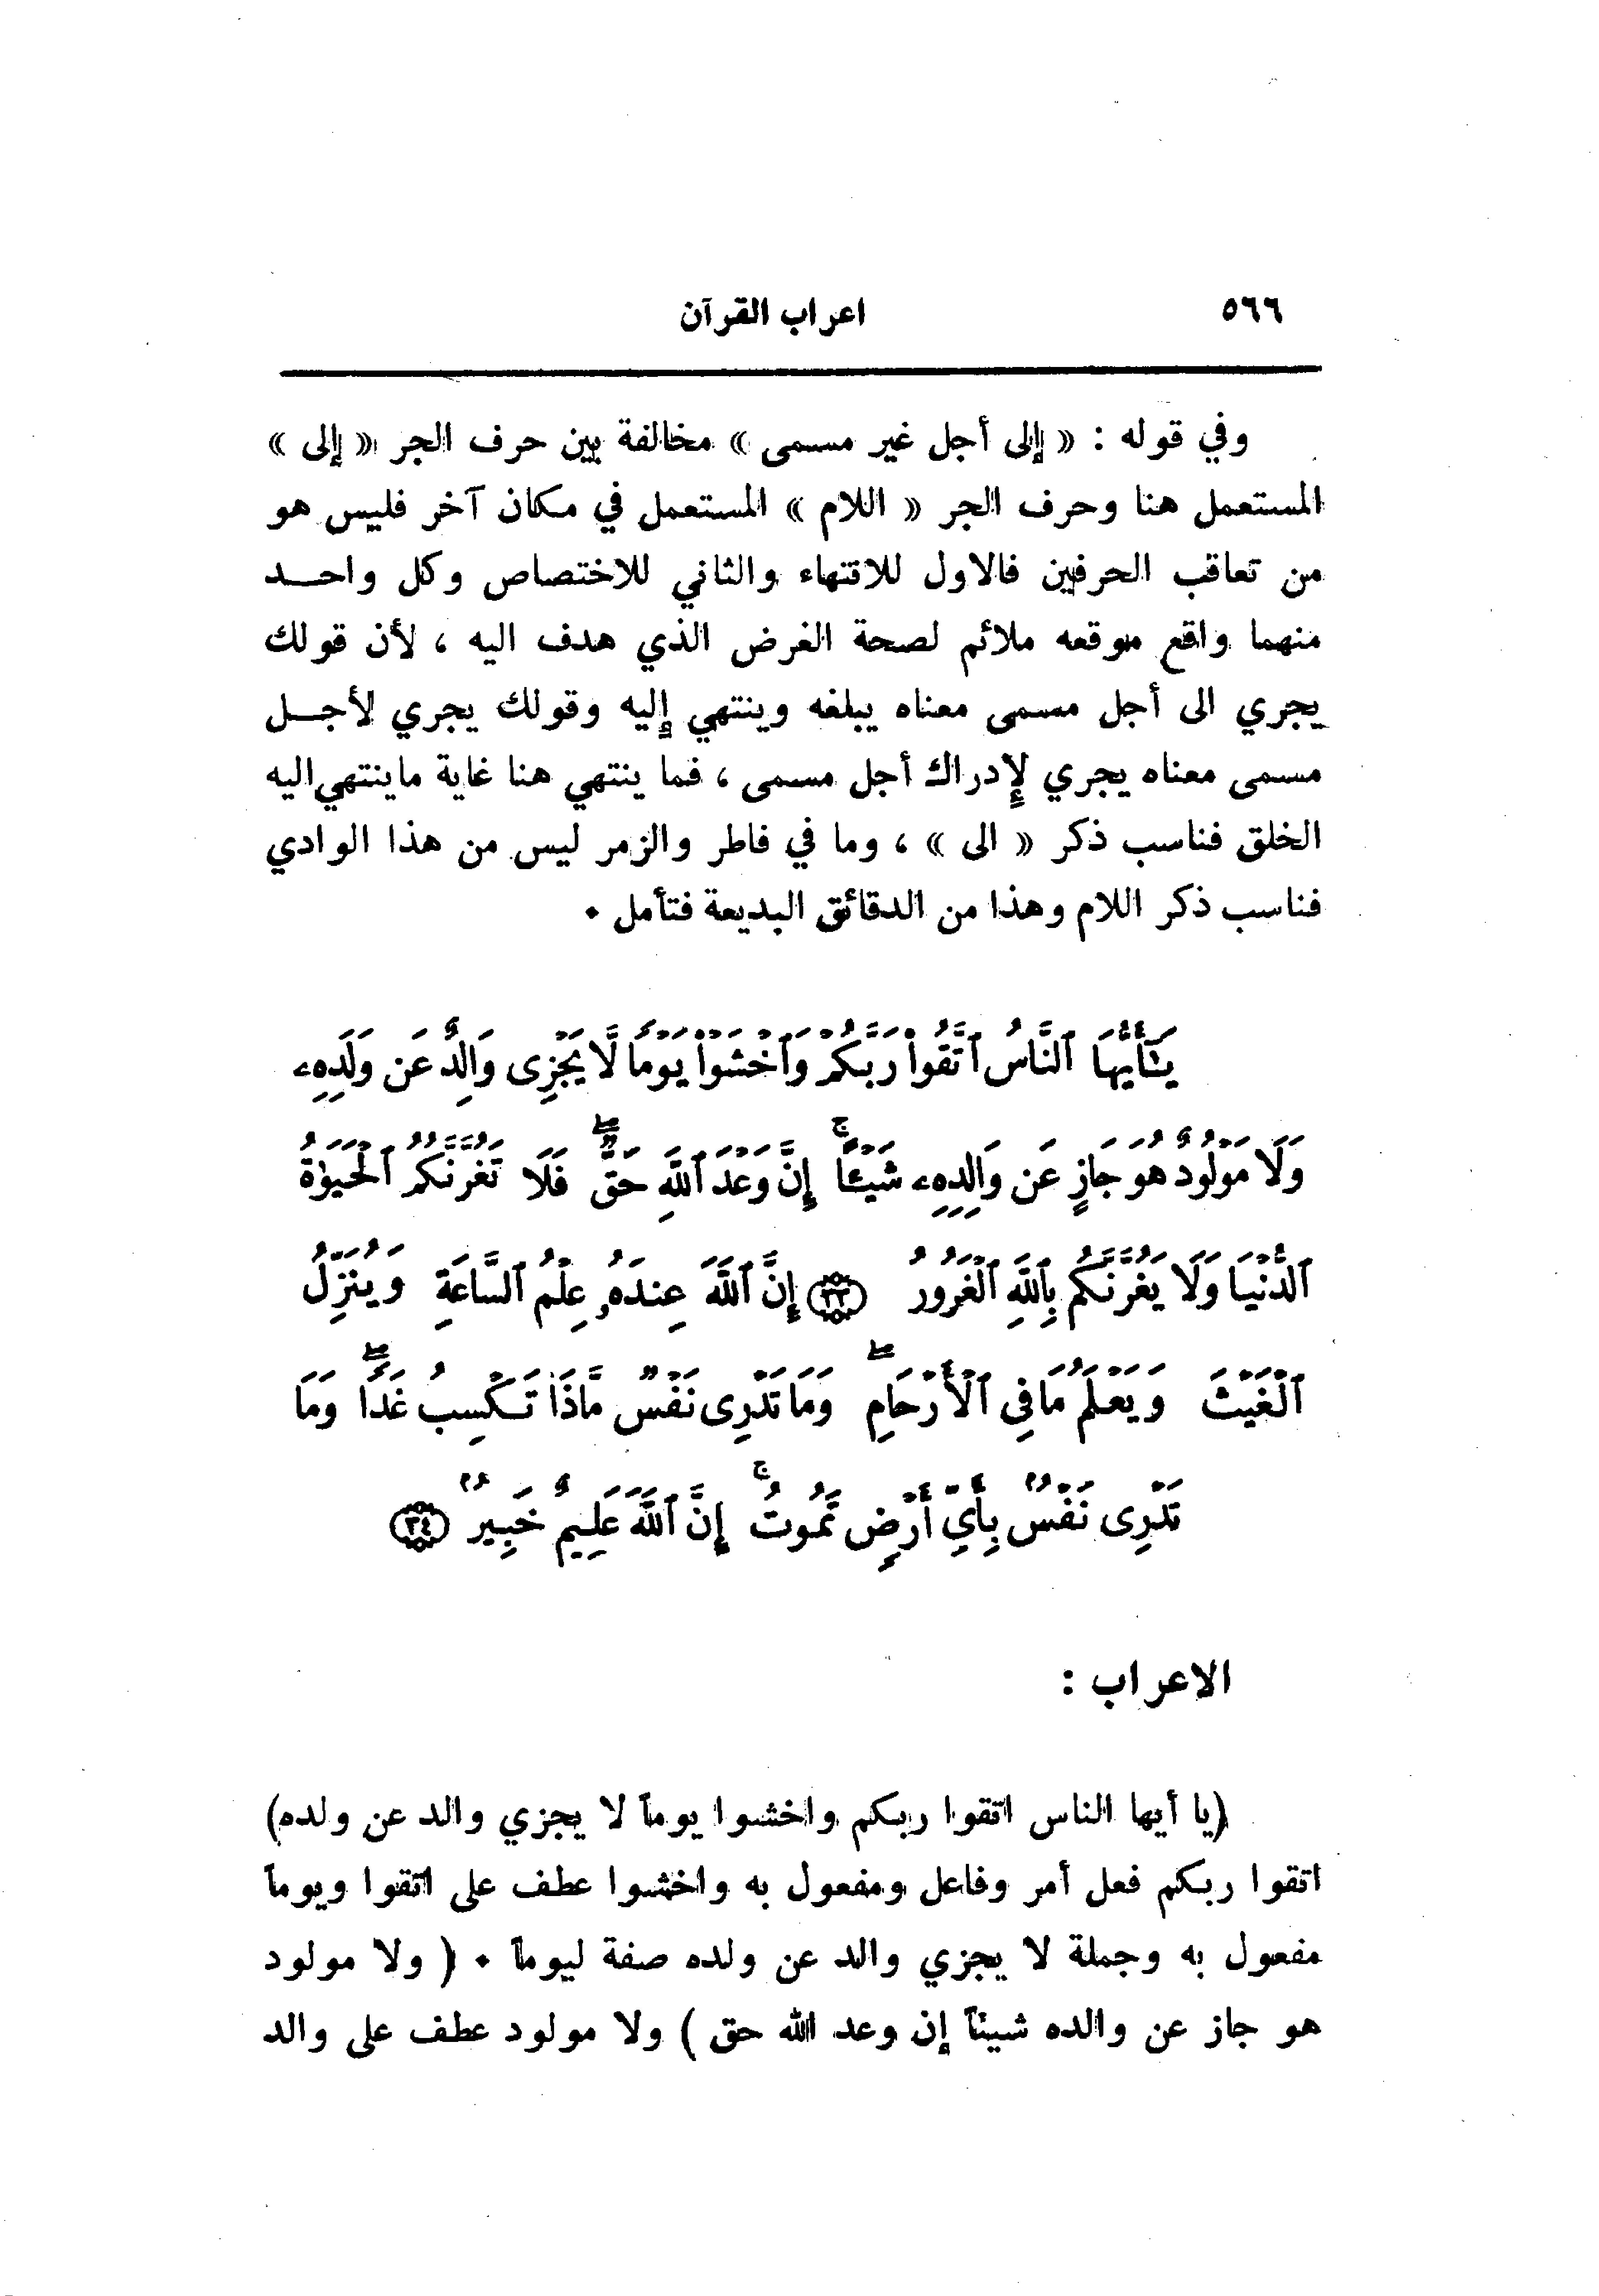 ٥٦٦ اعراب القرآن
وفي قوله : « إلى أجل غير مسمى » مخالفة بين حرف الجر « إلى »
المستعمل هنا وحرف الجر « اللام » المستعمل في مكان آخر فليس هو
من تعاقب الحرفين فالاول للانتهاء والثاني للاختصاص وكل واحـــد
منهما واقع موقعه ملائم لصحة الغرض الذي هدف اليه ، لأن قولك
يجري الى أجل مسمى معناه يبلغه وينتهي إليه وقولك يجري لأجـــل
مسمى معناه يجري لإدراك أجل مسمى ، فما ينتهي هنا غاية ماينتهي اليه
الخلق فناسب ذكر « الى » ، وما في فاطر والزمر ليس من هذا الوادي
فناسب ذكر اللام وهذا من الدقائق البديعة فتأمل ٠
يَـٰٓأَيُّهَا ٱلنَّاسُ ٱتَّقُوا۟ رَبَّكُمْ وَٱخْشَوْا۟ يَوْمًا لَّا يَجْزِى وَالِدٌ عَن وَلَدِهِۦ
وَلَا مَوْلُودٌ هُوَ جَازٍ عَن وَالِدِهِۦ شَيْـًٔا ۚ إِنَّ وَعْدَ ٱللَّهِ حَقٌّ ۖ فَلَا تَغُرَّنَّكُمُ ٱلْحَيَوٰةُ
ٱلدُّنْيَا وَلَا يَغُرَّنَّكُم بِٱللَّهِ ٱلْغَرُورُ ﴿٣٣﴾ إِنَّ ٱللَّهَ عِندَهُۥ عِلْمُ ٱلسَّاعَةِ وَيُنَزِّلُ
ٱلْغَيْثَ وَيَعْلَمُ مَا فِى ٱلْأَرْحَامِ ۖ وَمَا تَدْرِى نَفْسٌ مَّاذَا تَكْسِبُ غَدًا ۖ وَمَا
تَدْرِى نَفْسٌۢ بِأَىِّ أَرْضٍ تَمُوتُ ۚ إِنَّ ٱللَّهَ عَلِيمٌ خَبِيرٌۢ ﴿٣٤﴾
الاعراب :
(يا أيها الناس اتقوا ربكم واخشوا يوماً لا يجزي والد عن ولده)
اتقوا ربكم فعل أمر وفاعل ومفعول به واخشوا عطف على اتقوا ويوماً
مفعول به وجملة لا يجزي والد عن ولده صفة ليوماً ٠ ( ولا مولود
هو جاز عن والده شيئاً إن وعد الله حق ) ولا مولود عطف على والد